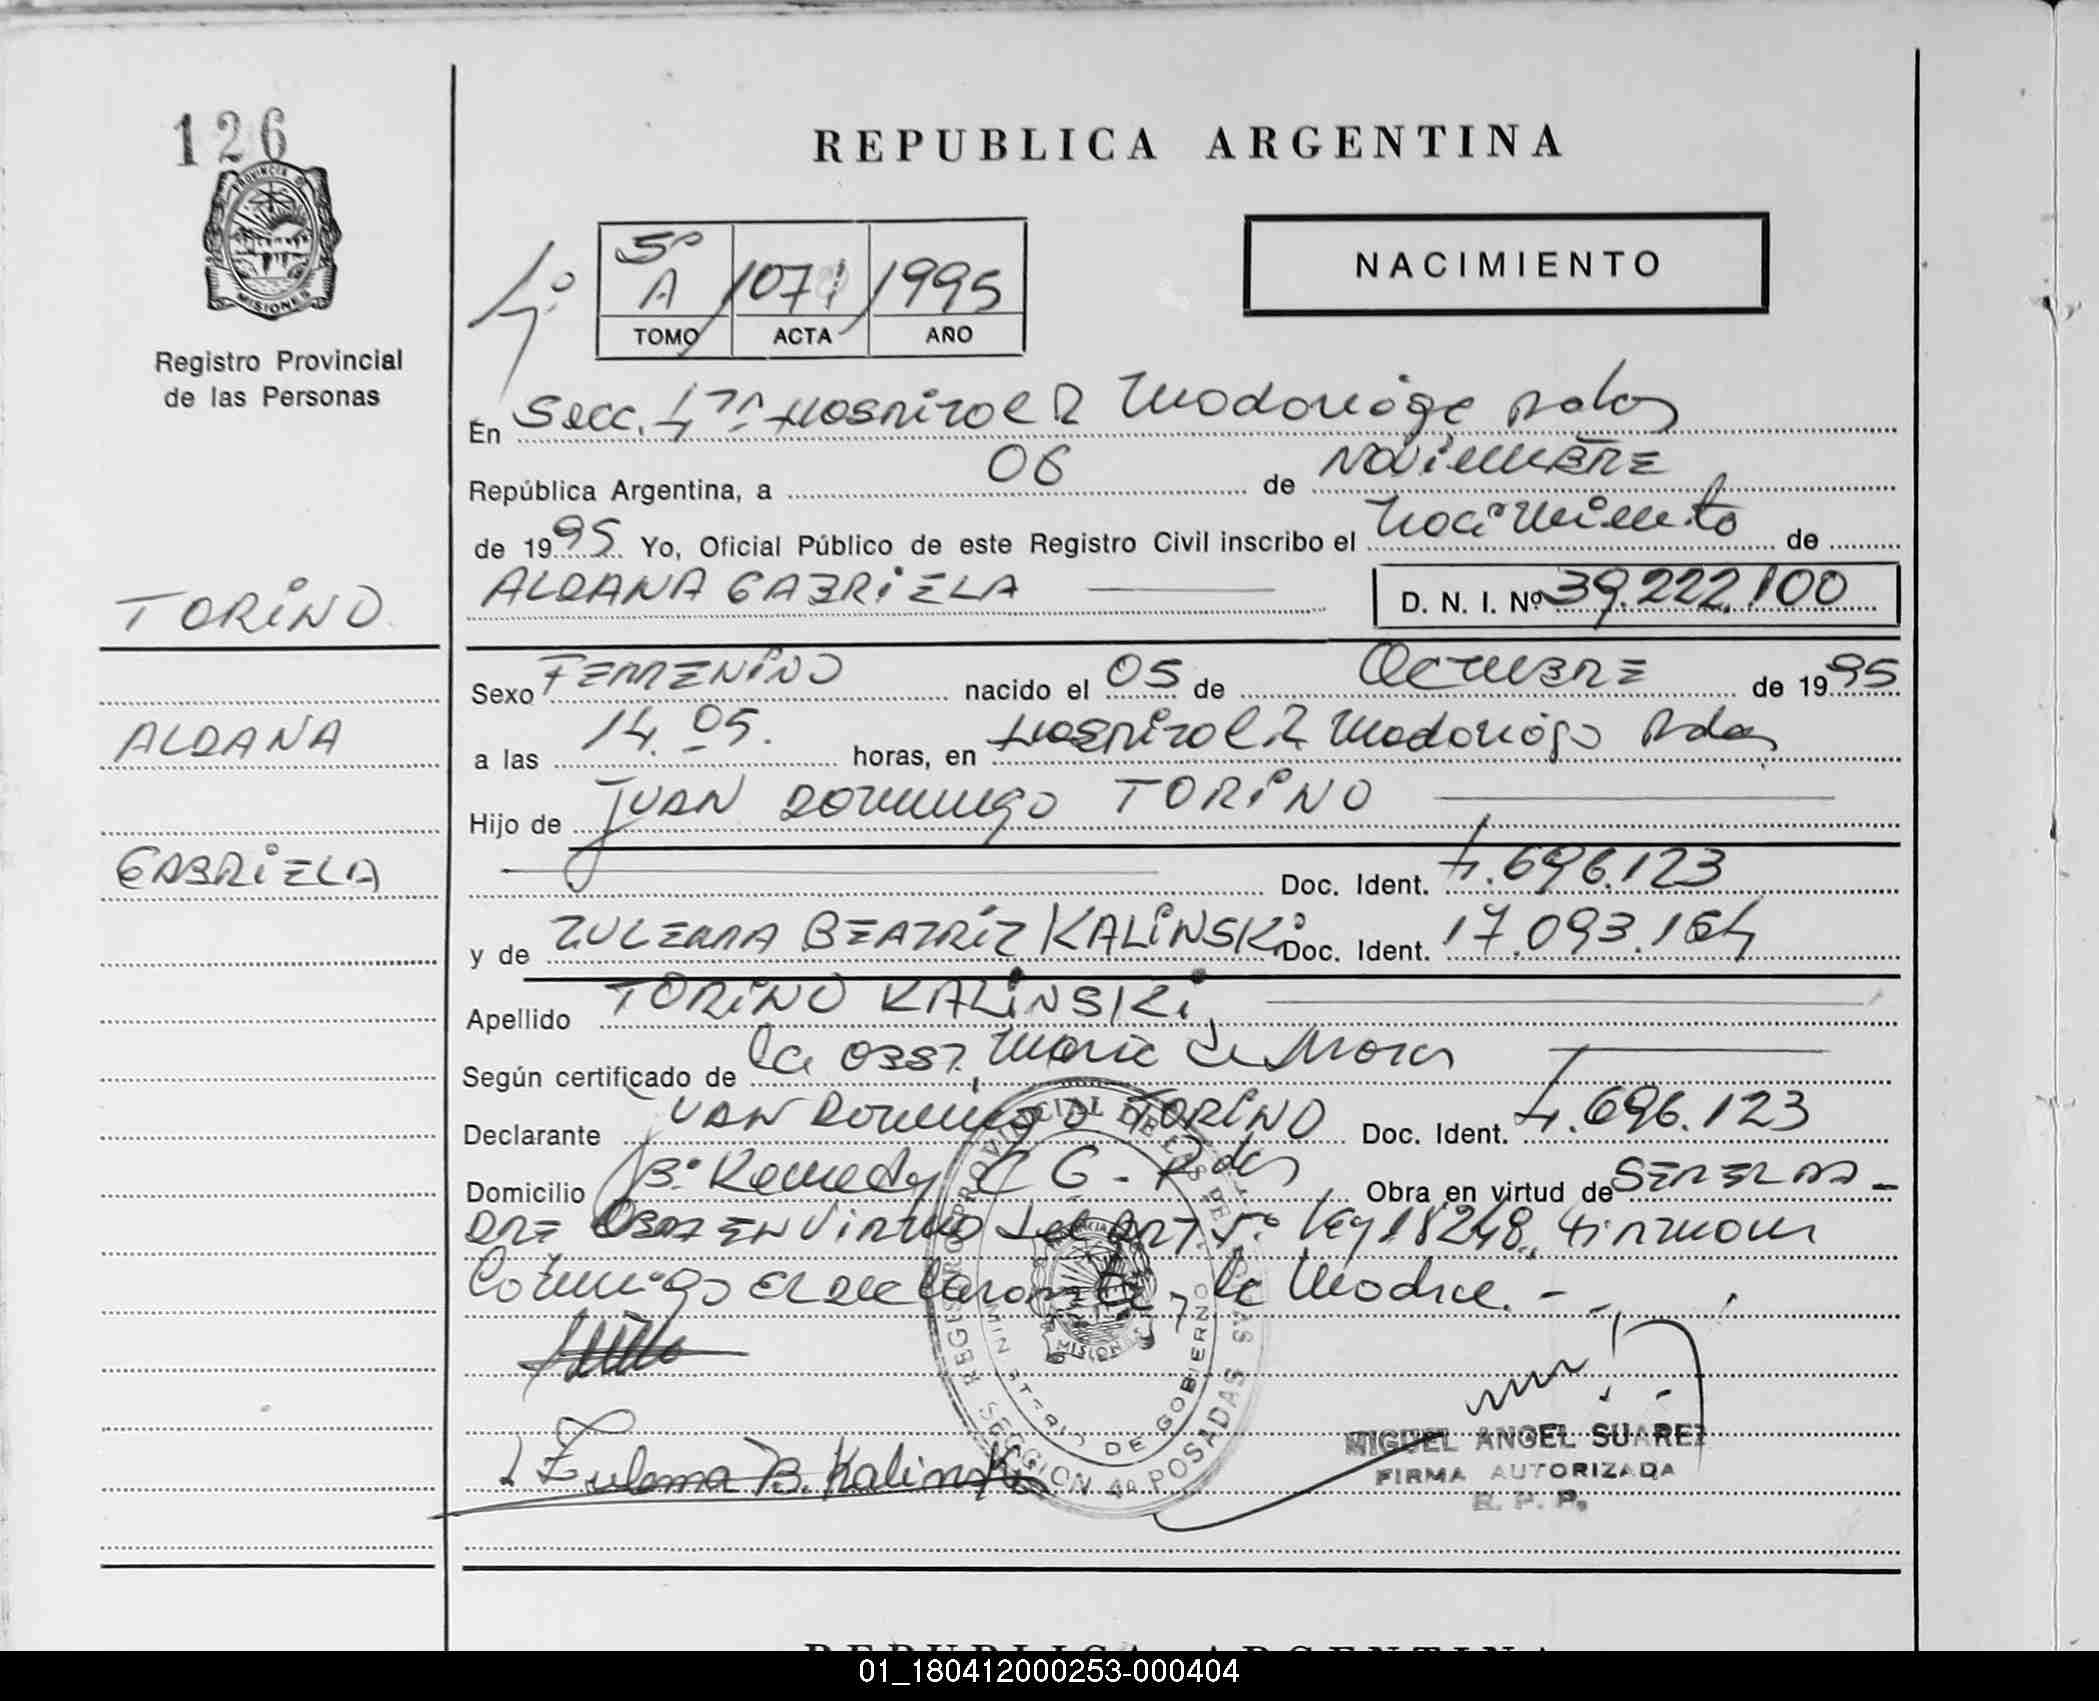 126
PROVINCIA D
MISIONES
Registro Provincial
de las Personas
TORINO
ALDANA
GABRIELA
REPUBLICA ARGENTINA
4º
5º
A 1071 1995
TOMO ACTA AÑO
NACIMIENTO
En Secc. 4ta Hospital R Madariaga Pdas
República Argentina, a 06 de Noviembre
de 1995 Yo, Oficial Público de este Registro Civil inscribo el nacimiento de
ALDANA GABRIELA D. N. I. Nº 39.222.100
Sexo FEMENINO nacido el 05 de Octubre de 1995
a las 14.05. horas, en Hospital R Madariaga Pdas
Hijo de JUAN Domingo TORINO
Doc. Ident. 4.696.123
y de ZULEMA BEATRIZ KALINSKI Doc. Ident. 17.093.164
Apellido TORINO KALINSKI
Según certificado de la OBST. Maria de Mora
Declarante JUAN Domingo TORINO Doc. Ident. 4.696.123
Domicilio Bº Kennedy C G - Pdas Obra en virtud de SER EL PA-
DRE OBRA EN VIRTUD del ART. 5º Ley 18248, firman
Conmigo el declarante y la Madre. - -
Zulema B. Kalinski
REGISTRO PROVINCIAL DE LAS PERSONAS
MINISTERIO DE GOBIERNO
MISIONES
SECCION 4a POSADAS
MIGUEL ANGEL SUAREZ
FIRMA AUTORIZADA
R. P. P.
REPUBLICA ARGENTINA
01_180412000253-000404